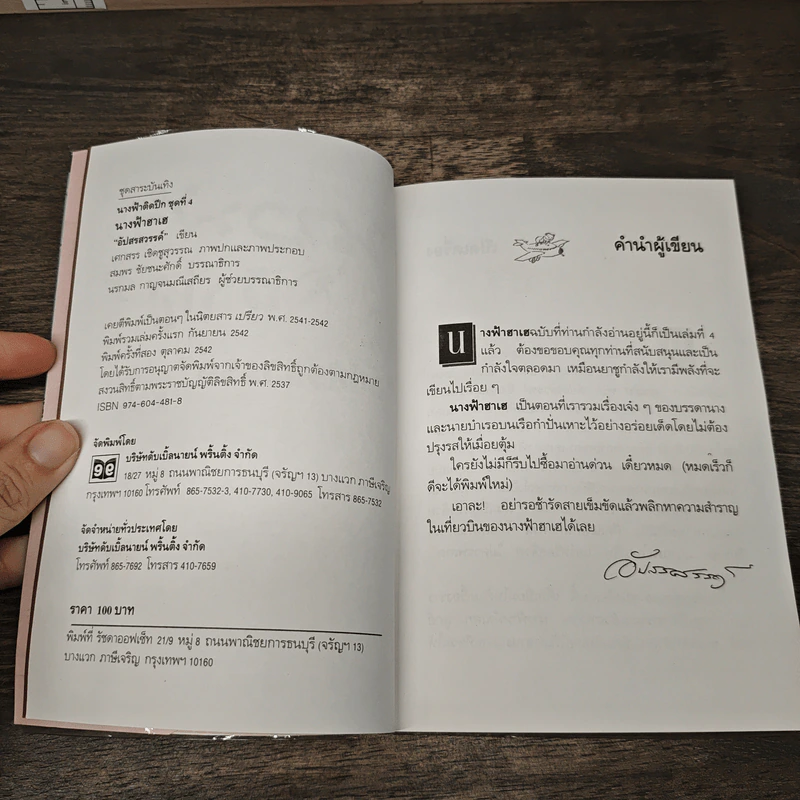 ชุดสาระบันเทิง
นางฟ้าติดปีก ชุดที่ 4
นางฟ้าฮาเฮ
"อัปสรสวรรค์" เขียน
เศกสรร เชิดชูสุวรรณ ภาพปกและภาพประกอบ
สมพร ชัยชนะศักดิ์ บรรณาธิการ
นรกมล กาญจนมณีเสถียร ผู้ช่วยบรรณาธิการ
เคยตีพิมพ์เป็นตอนๆ ในนิตยสาร เปรียว พ.ศ. 2541-2542
พิมพ์รวมเล่มครั้งแรก กันยายน 2542
พิมพ์ครั้งที่สอง ตุลาคม 2542
โดยได้รับการอนุญาตจัดพิมพ์จากเจ้าของลิขสิทธิ์ถูกต้องตามกฎหมาย
สงวนสิทธิ์ตามพระราชบัญญัติลิขสิทธิ์ พ.ศ. 2537
ISBN 974-604-481-8
จัดพิมพ์โดย
บริษัทดับเบิ้ลนายน์ พริ้นติ้ง จำกัด
18/27 หมู่ 8 ถนนพาณิชยการธนบุรี (จรัญฯ 13) บางแวก ภาษีเจริญ
กรุงเทพฯ 10160 โทรศัพท์ 865-7532-3, 410-7730, 410-9065 โทรสาร 865-7532
จัดจำหน่ายทั่วประเทศโดย
บริษัทดับเบิ้ลนายน์ พริ้นติ้ง จำกัด
โทรศัพท์ 865-7692 โทรสาร 410-7659
ราคา 100 บาท
พิมพ์ที่ รัชดาออฟเซ็ท 21/9 หมู่ 8 ถนนพาณิชยการธนบุรี (จรัญฯ 13)
บางแวก ภาษีเจริญ กรุงเทพฯ 10160
คำนำผู้เขียน
นางฟ้าฮาเฮฉบับที่ท่านกำลังอ่านอยู่นี้ก็เป็นเล่มที่ 4
แล้ว ต้องขอขอบคุณทุกท่านที่สนับสนุนและเป็น
กำลังใจตลอดมา เหมือนยาชูกำลังให้เรามีพลังที่จะ
เขียนไปเรื่อย ๆ
นางฟ้าฮาเฮ เป็นตอนที่เรารวมเรื่องเจ๋ง ๆ ของบรรดานาง
และนายบำเรอบนเรือกำปั่นเหาะไว้อย่างอร่อยเด็ดโดยไม่ต้อง
ปรุงรสให้เมื่อยตุ้ม
ใครยังไม่มีก็รีบไปซื้อมาอ่านด่วน เดี๋ยวหมด (หมดเร็วก็
ดีจะได้พิมพ์ใหม่)
เอาละ! อย่ารอช้ารัดสายเข็มขัดแล้วพลิกหาความสำราญ
ในเที่ยวบินของนางฟ้าฮาเฮได้เลย
อัปสรสวรรค์